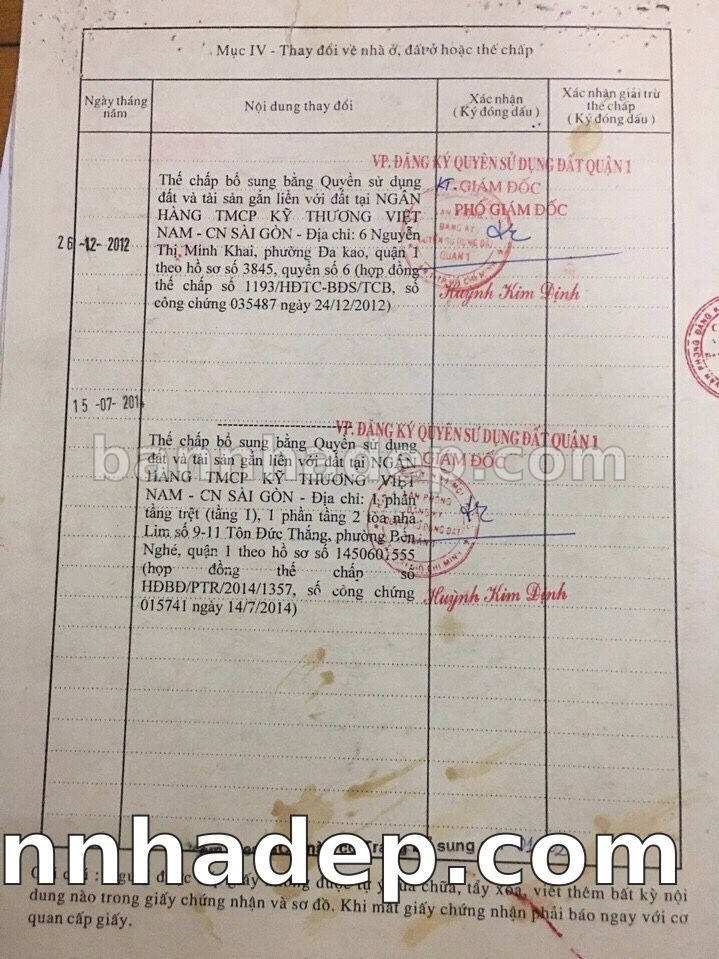 Mục IV - Thay đổi về nhà ở, đất ở hoặc thế chấp
Ngày tháng năm
Nội dung thay đổi
Xác nhận
(Ký đóng dấu)
Xác nhận giải trừ
thế chấp
(Ký đóng dấu)
26-12-2012
Thế chấp bổ sung bằng Quyền sử dụng
đất và tài sản gắn liền với đất tại NGÂN
HÀNG TMCP KỸ THƯƠNG VIỆT
NAM - CN SÀI GÒN - Địa chỉ: 6 Nguyễn
Thị Minh Khai, phường Đa kao, quận 1
theo hồ sơ số 3845, quyển số 6 (hợp đồng
thế chấp số 1193/HĐTC-BĐS/TCB, số
công chứng 035487 ngày 24/12/2012)
VP. ĐĂNG KÝ QUYỀN SỬ DỤNG ĐẤT QUẬN 1
KT. GIÁM ĐỐC
PHÓ GIÁM ĐỐC
Huỳnh Kim Định
15-07-201
Thế chấp bổ sung bằng Quyền sử dụng
đất và tài sản gắn liền với đất tại NGÂN
HÀNG TMCP KỸ THƯƠNG VIỆT
NAM - CN SÀI GÒN - Địa chỉ: 1 phần
tầng trệt (tầng 1), 1 phần tầng 2 tòa nhà
Lim số 9-11 Tôn Đức Thắng, phường Bến
Nghé, quận 1 theo hồ sơ số 1450601555
(hợp đồng thế chấp số
HĐBĐ/PTR/2014/1357, số công chứng
015741 ngày 14/7/2014)
VP. ĐĂNG KÝ QUYỀN SỬ DỤNG ĐẤT QUẬN 1
GIÁM ĐỐC
Huỳnh Kim Định
bannhadep.com
nnhadep.com
sung
dung nào trong giấy chứng nhận và sơ đồ. Khi mất giấy chứng nhận phải báo ngay với cơ
quan cấp giấy.